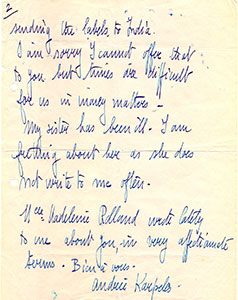 2/
sending the labels to India.
I am sorry I cannot offer that
to you but times are difficult
for us in money matters -
My sister has been ill. I am
fretting about her as she does
not write to me often.
Mlle Madeleine Rolland wrote lately
to me about you, in very affectionate
terms. Bien à vous.
Andrée Karpelès